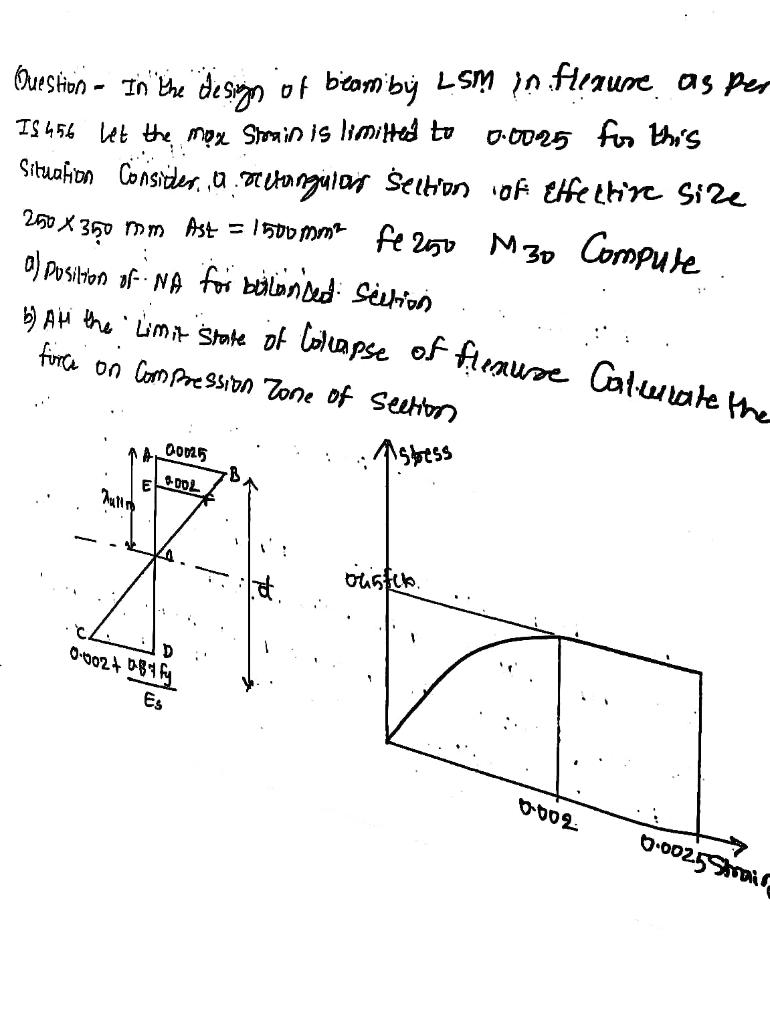 Question - In the design of beam by LSM in flexure as per
IS 456 let the max strain is limitted to 0.0025 for this
Situation Consider a rectangular section of effective size
250 X 350 mm Ast = 1500mm² fe 250 M30 Compute
a) Position of NA for balanced section
b) At the Limit State of Collapse of flexure Calculate the
force on Compression Zone of section
A 0.0025
B
E 0.002
d
C
D
0.002 + 0.87 fy
Es
stress
0.45fck
0.002
0.0025 Strain